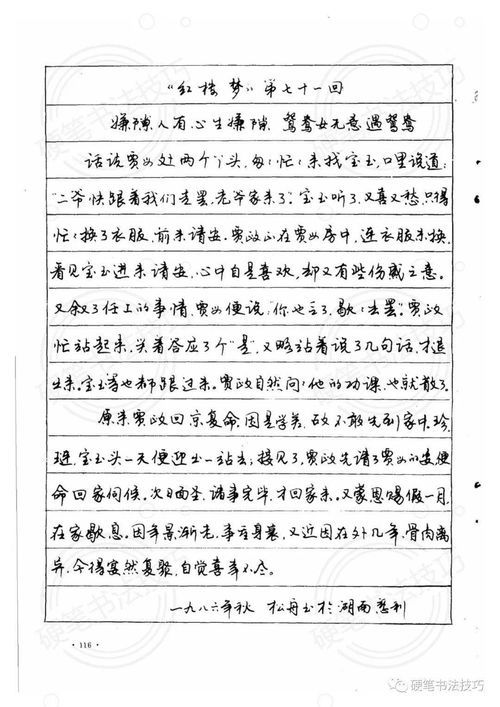 “红楼梦”第七十一回
嫌隙人有心生嫌隙 鸳鸯女无意遇鸳鸯
话说贾母处两个丫头,匆匕忙匕来找宝玉,口里说道:
“二爷快跟着我们走罢,老爷家来了”。宝玉听了,又喜又愁,只得
忙匕换了衣服,前来请安。贾政正在贾母房中,连衣服未换,
看见宝玉进来请安,心中自是喜欢,却又有些伤感之意。
又叙了任上的事情,贾母便说“你也乏了,歇匕去罢”。贾政
忙站起来,笑着答应了个“是”,又略站着说了几句话,才退
出来。宝玉等也都跟过来。贾政自然问匕他的功课,也就散了。
原来贾政回京复命,因是学差,故不敢先到家中。珍、
琏、宝玉头一天便迎出一站去,接见了,贾政先请了贾母的安,便
命回家伺候。次日面圣,诸事完毕,才回家来。又蒙恩赐假一月,
在家歇息。因年景渐老,事重身衰,又近因在外几年,骨肉离
异,今得宴然复聚,自觉喜幸不尽。
一九八六年秋 松舟书于湖南慈利
·116·
硬笔书法技巧